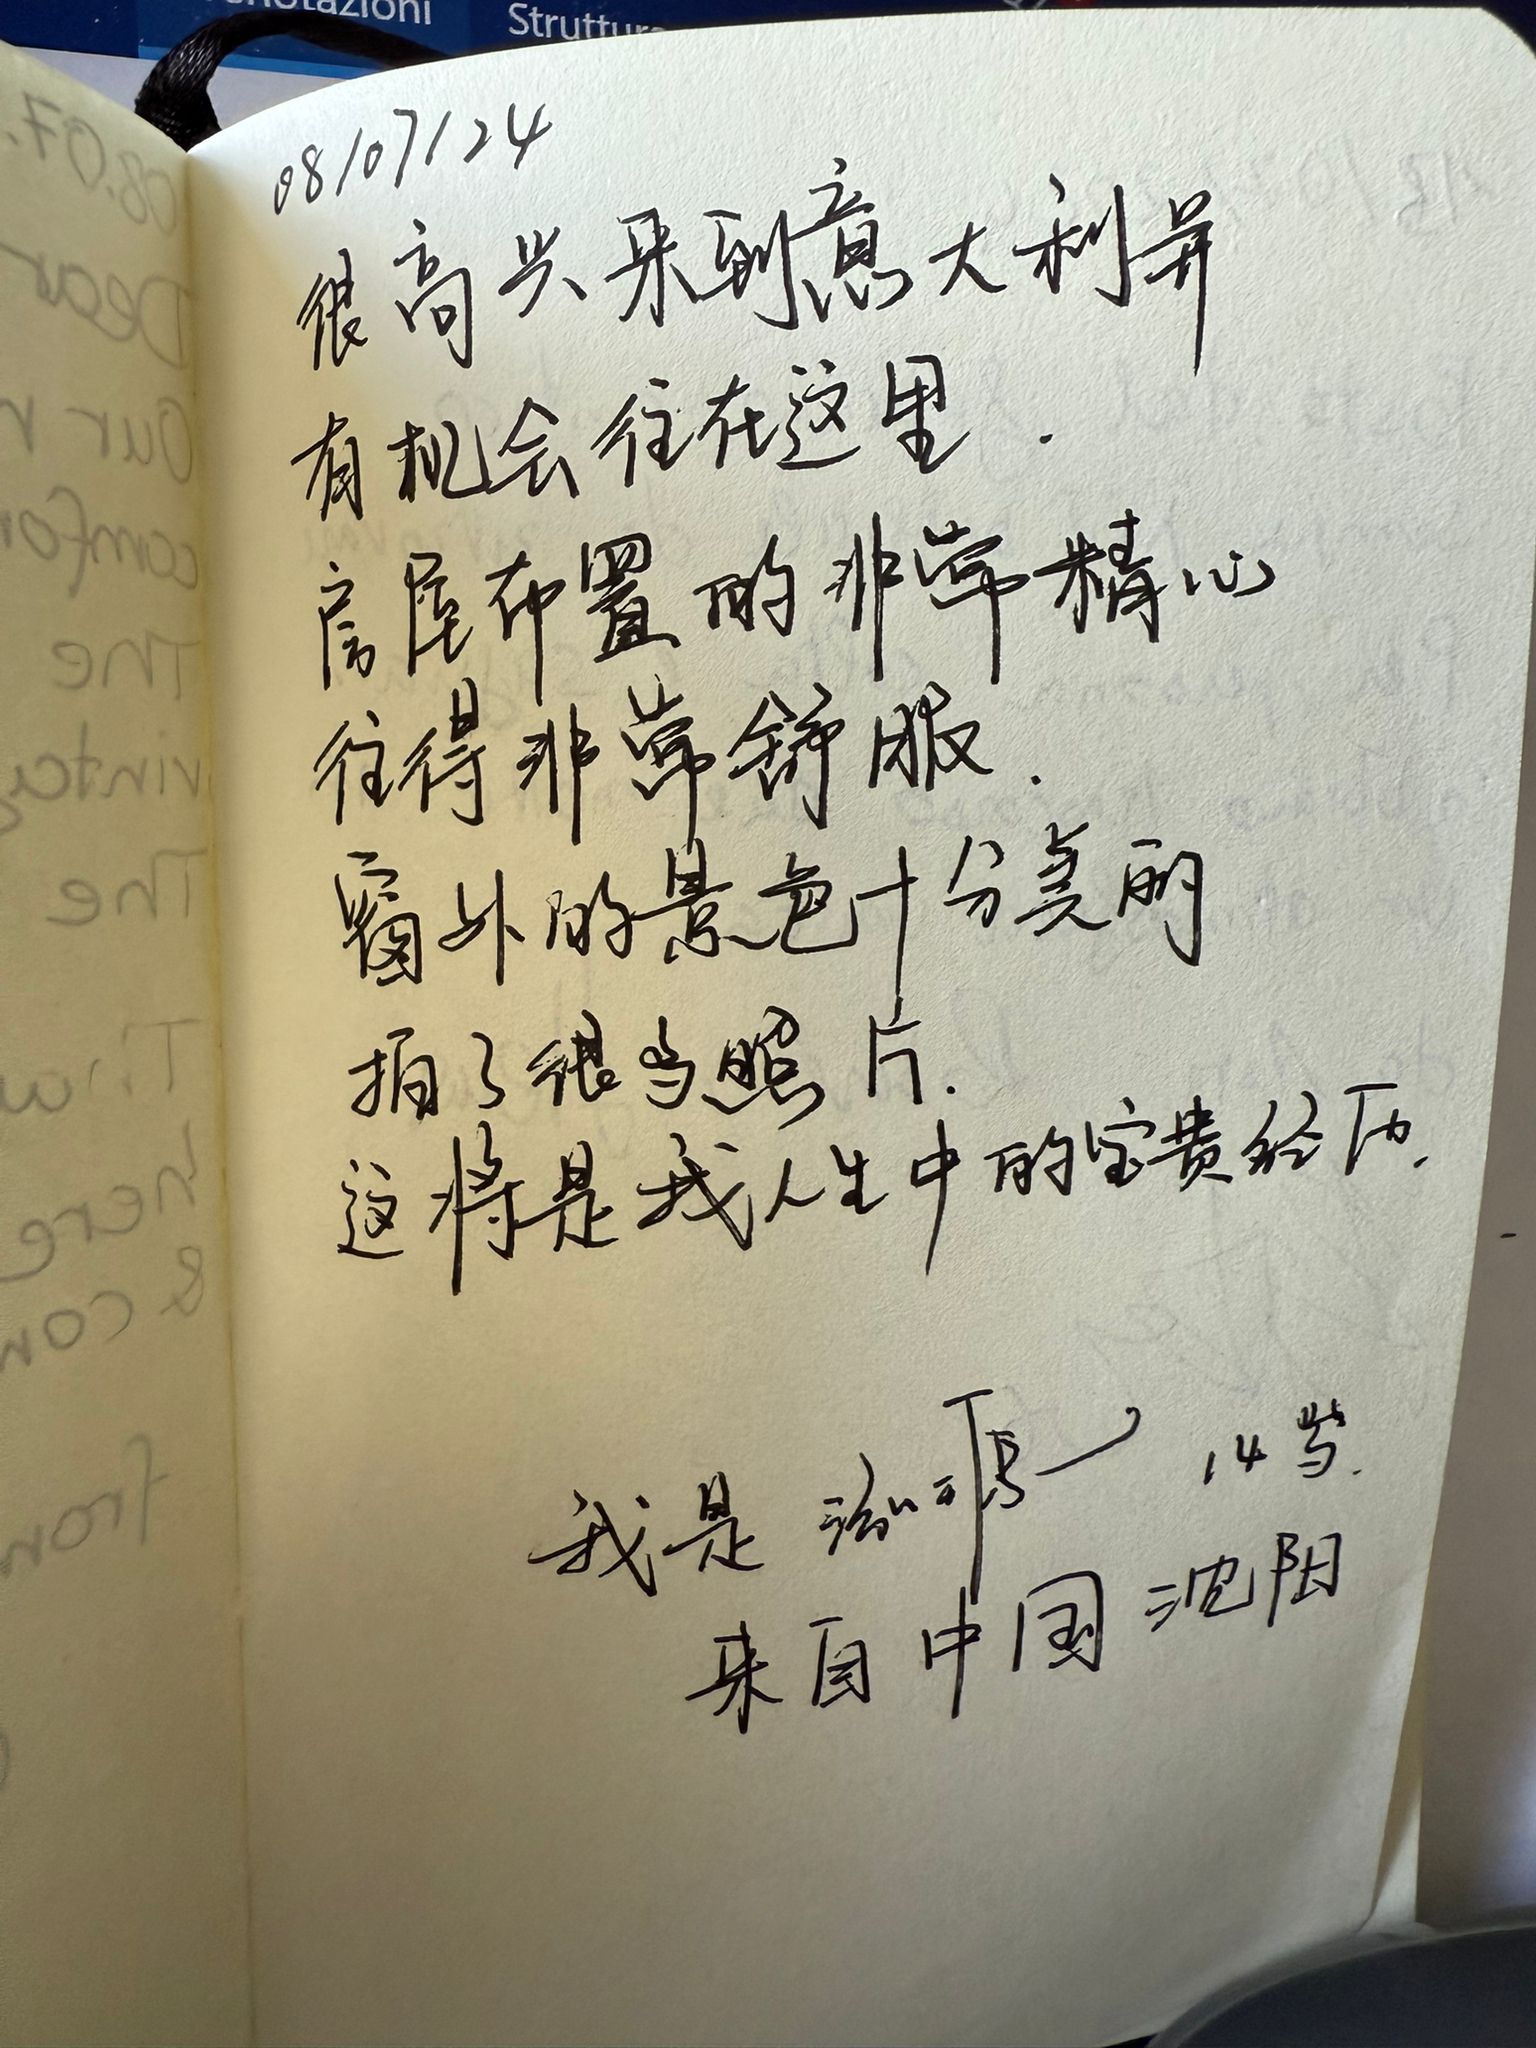 notazioni
Struttura
08/07/24
很高兴来到意大利并
有机会住在这里.
房屋布置的非常精心
住得非常舒服.
窗外的景色十分美丽
拍了很多照片.
这将是我人生中的宝贵经历.
我是 14岁.
来自中国沈阳